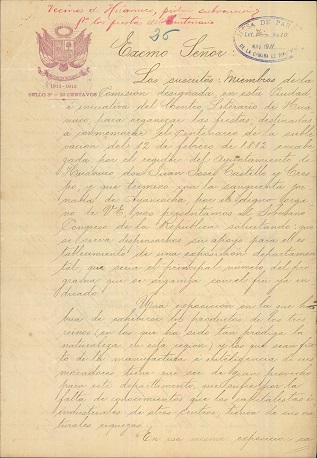 Vecinos de Huánuco, piden subvencion
pa. las fiestas del Centenario
35
1911-1912
SELLO 5º - 20 CENTAVOS
MESA DE PARTES
Exmo Señor
Los suscritos: Miembros de la
Comisión designada, en esta Ciudad
a iniciativa del Centro Literario de Huá
nuco, para organizar las fiestas destinadas
a conmemorar el Centenario de la suble
vacion del 12 de febrero de 1812 encabe
zada por el regidor del Ayuntamiento de
Huánuco don Juan José Castillo y Cres
po, y que terminó con la sangrienta jor
nada de Ayancocha, por el digno órga
no de V.E., nos presentamos al Soberano
Congreso de la República solicitando: que
se sirva dispensarnos su apoyo para el es
tablecimiento de una exposicion departamen
tal, que sera el principal número del pro
grama que se organiza con el fin ya in
dicado.
Una exposición en la que ha
bra de exhibirse los productos de los tres
reinos (en los que ha sido tan prodiga la
naturaleza en esta región) y los que sean fru
to de la manufactura e inteligencia de sus
moradores tiene que ser de gran provecho
para este departamento, que sufre por la
falta de conocimientos que los capitalistas e
industriales de otros centros, tienen de sus na
turales riquezas.
En esa misma exposición se